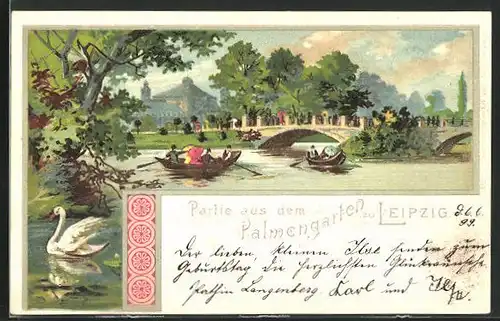 Partie aus dem
Palmengarten zu LEIPZIG.
26.6.
99.
Der lieben, kleinen Ilse senden zum
Geburtstag die herzlichsten Glückwünsche
Langenberg Karl und